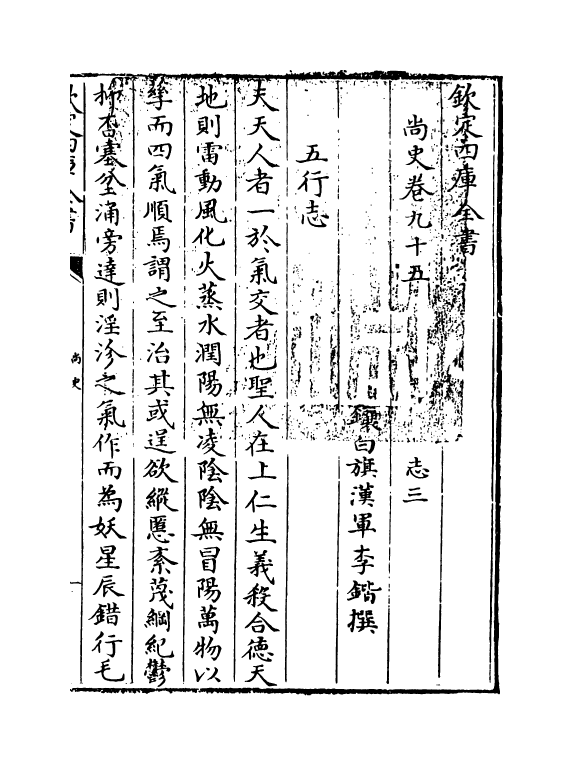 欽定四庫全書
尚史卷九十五　志三
鑲白旗漢軍李鍇撰
五行志
夫天人者一於氣交者也聖人在上仁生義殺合徳天
地則雷動風化火蒸水潤陽無凌陰陰無冒陽萬物以
孳而四氣順焉謂之至治其或逞欲縱慝紊蔑綱紀鬱
抑沓塞坌涌旁達則淫沴之氣作而為妖星辰錯行毛
尚史